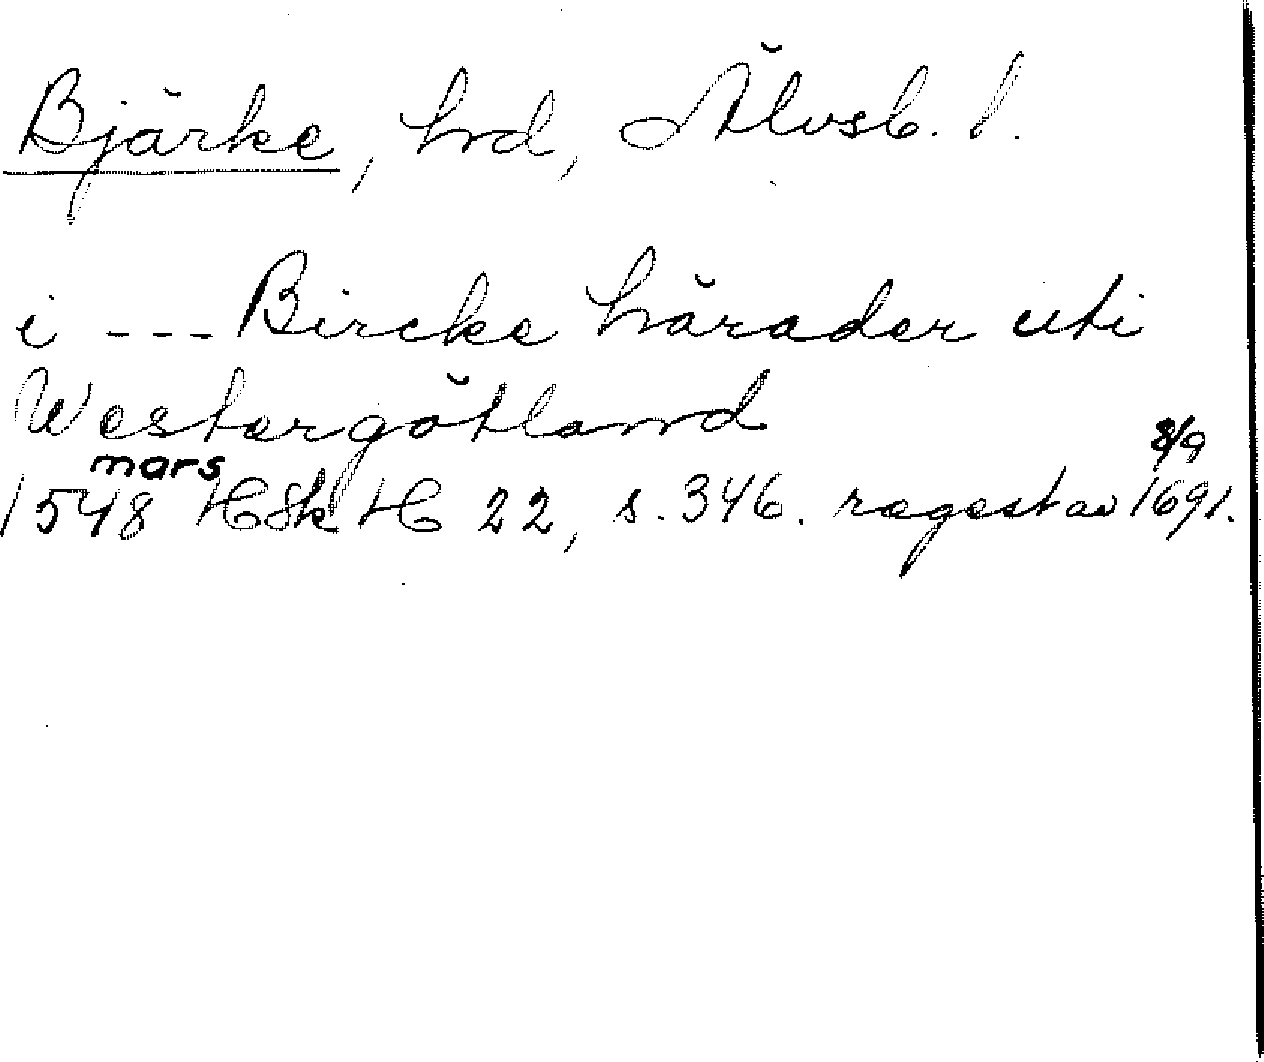 Bjärke, hrd, Älvsb. l.
i --- Bircke härader uti
Westergötland
mars 8/9
1548 HSkH 22, s. 346. regest av 1691.